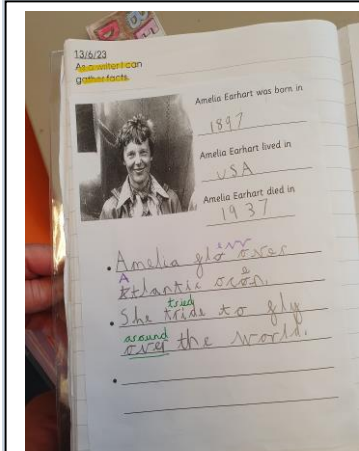 13/6/23
As a writer I can
gather facts.
Amelia Earhart was born in
1897
Amelia Earhart lived in
USA
Amelia Earhart died in
1937
ew
• Amelia glo over
A
Atlantic ocon.
e
tried
• She tride to fly
around
over the world.
•